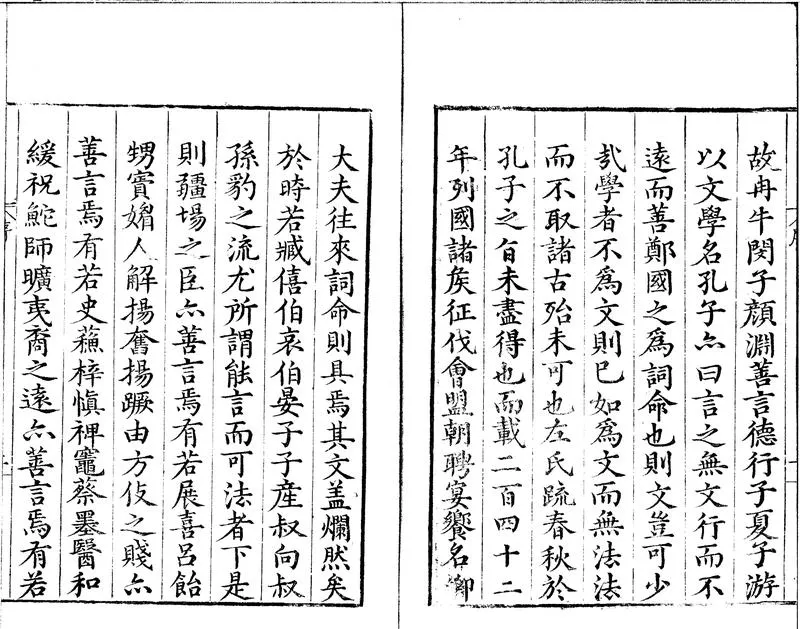 故冉牛閔子顔淵善言德行子夏子游
以文學名孔子亦曰言之無文行而不
遠而善鄭國之爲詞命也則文豈可少
㦲學者不爲文則已如爲文而無法法
而不取諸古殆未可也左氏䟽春秋於
孔子之㫖未盡得也而載二百四十二
年列國諸矦征伐會盟朝聘宴饗名卿
大夫往來詞命則具焉其文盖爛然矣
於時若臧僖伯哀伯晏子子產叔向叔
孫豹之流尤所謂能言而可法者下是
則疆埸之臣亦善言焉有若展喜呂飴
甥賓媚人解揚奮揚蹶由方伎之賤亦
善言焉有若史蘇梓慎裨竈蔡墨醫和
緩祝鮀師曠夷裔之遠亦善言焉有若